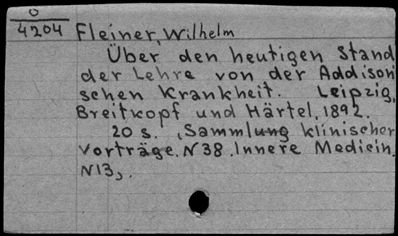 0
4204
Fleiner, Wilhelm
Über den heutigen Stand
der Lehre von der Addison
schen Krankheit. Leipzig,
Breitkopf und Härtel, 1892.
20 s. „Sammlung klinischer
Vorträge. N 38. Innere Medicin.
N13„.